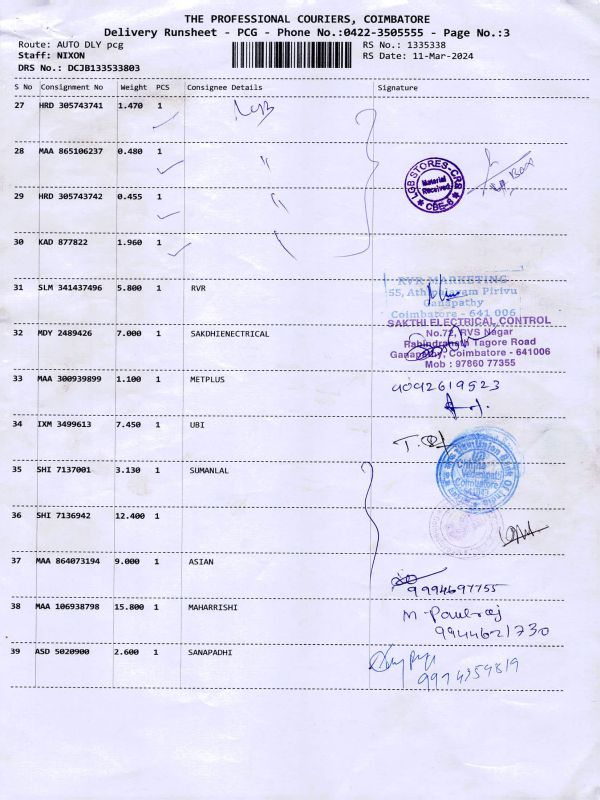 THE PROFESSIONAL COURIERS, COIMBATORE
Delivery Runsheet - PCG - Phone No.:0422-3505555 - Page No.:3
Route: AUTO DLY pcg RS No.: 1335338
Staff: NIXON RS Date: 11-Mar-2024
DRS No.: DCJB133533803
S No Consignment No Weight PCS Consignee Details Signature
27 HRD 305743741 1.470 1 LGB
28 MAA 865106237 0.480 1 "
LGB STORES-CRS
Material Received
CBE-6
29 HRD 305743742 0.455 1 "
30 KAD 877822 1.960 1
31 SLM 341437496 5.800 1 RVR
RVR MARKETING
55, Athipalayam Pirivu
Ganapathy
Coimbatore - 641 006
32 MDY 2489426 7.000 1 SAKDHIENECTRICAL
SAKTHI ELECTRICAL CONTROL
No.72, RVS Nagar
Rabindranath Tagore Road
Ganapathy, Coimbatore - 641006
Mob : 97860 77355
33 MAA 300939899 1.100 1 METPLUS
9092619523
34 IXM 3499613 7.450 1 UBI
Union Bank Of India
Coimbatore
35 SHI 7137001 3.130 1 SUMANLAL
36 SHI 7136942 12.400 1
37 MAA 864073194 9.000 1 ASIAN
9994697755
38 MAA 106938798 15.800 1 MAHARRISHI
M. Paulraj
9944621730
39 ASD 5020900 2.600 1 SANAPADHI
9974359819